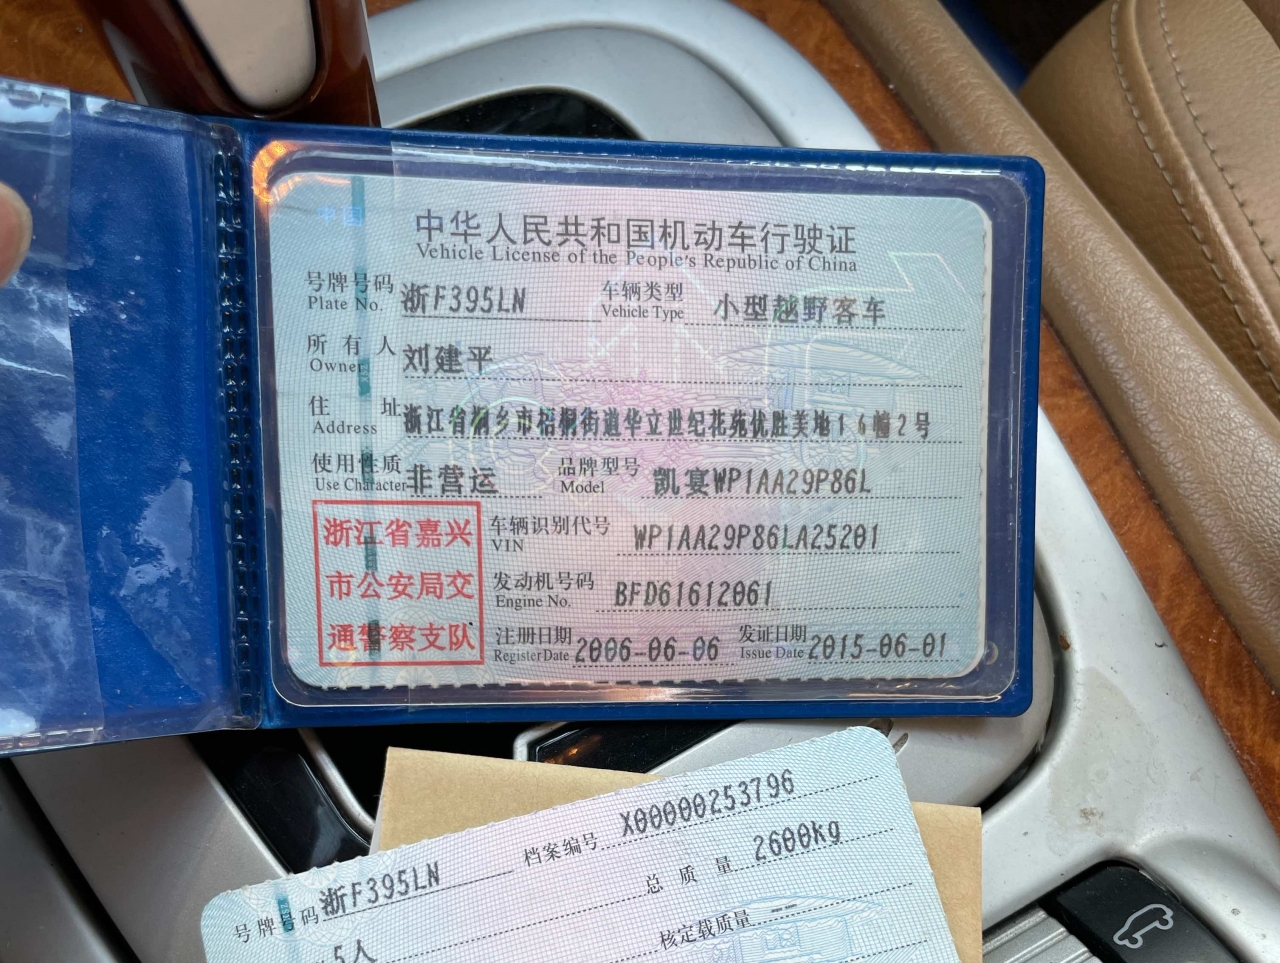 中华人民共和国机动车行驶证
Vehicle License of the People's Republic of China
号牌号码 浙F395LN 车辆类型 小型越野客车
Plate No. Vehicle Type
所有人 刘建平
Owner
住址 浙江省桐乡市梧桐街道华立世纪花苑优胜美地16幢2号
Address
使用性质 非营运 品牌型号 凯宴WP1AA29P86L
Use Character Model
浙江省嘉兴
市公安局交
通警察支队
车辆识别代号 WP1AA29P86LA25201
VIN
发动机号码 BFD61612061
Engine No.
注册日期 2006-06-06 发证日期 2015-06-01
Register Date Issue Date
号牌号码 浙F395LN 档案编号 X00000253796
5人 总质量 2600kg
核定载质量